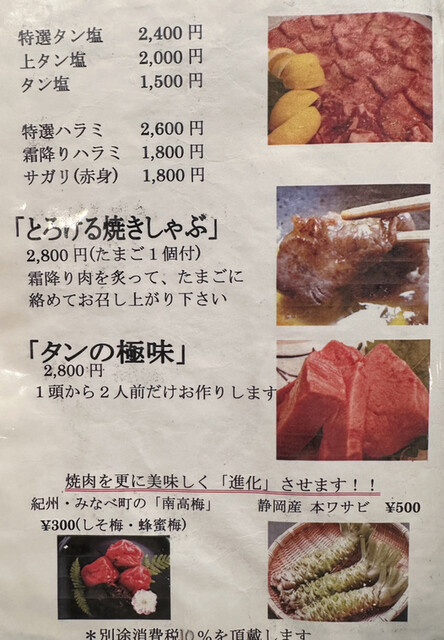 特選タン塩 2,400円
上タン塩 2,000円
タン塩 1,500円
特選ハラミ 2,600円
霜降りハラミ 1,800円
サガリ(赤身) 1,800円
「とろける焼きしゃぶ」
2,800円(たまご1個付)
霜降り肉を炙って、たまごに
絡めてお召し上がり下さい
「タンの極味」
2,800円
1頭から2人前だけお作りします
焼肉を更に美味しく「進化」させます！！
紀州・みなべ町の「南高梅」
¥300(しそ梅・蜂蜜梅)
静岡産 本ワサビ ¥500
＊別途消費税10%を頂戴します